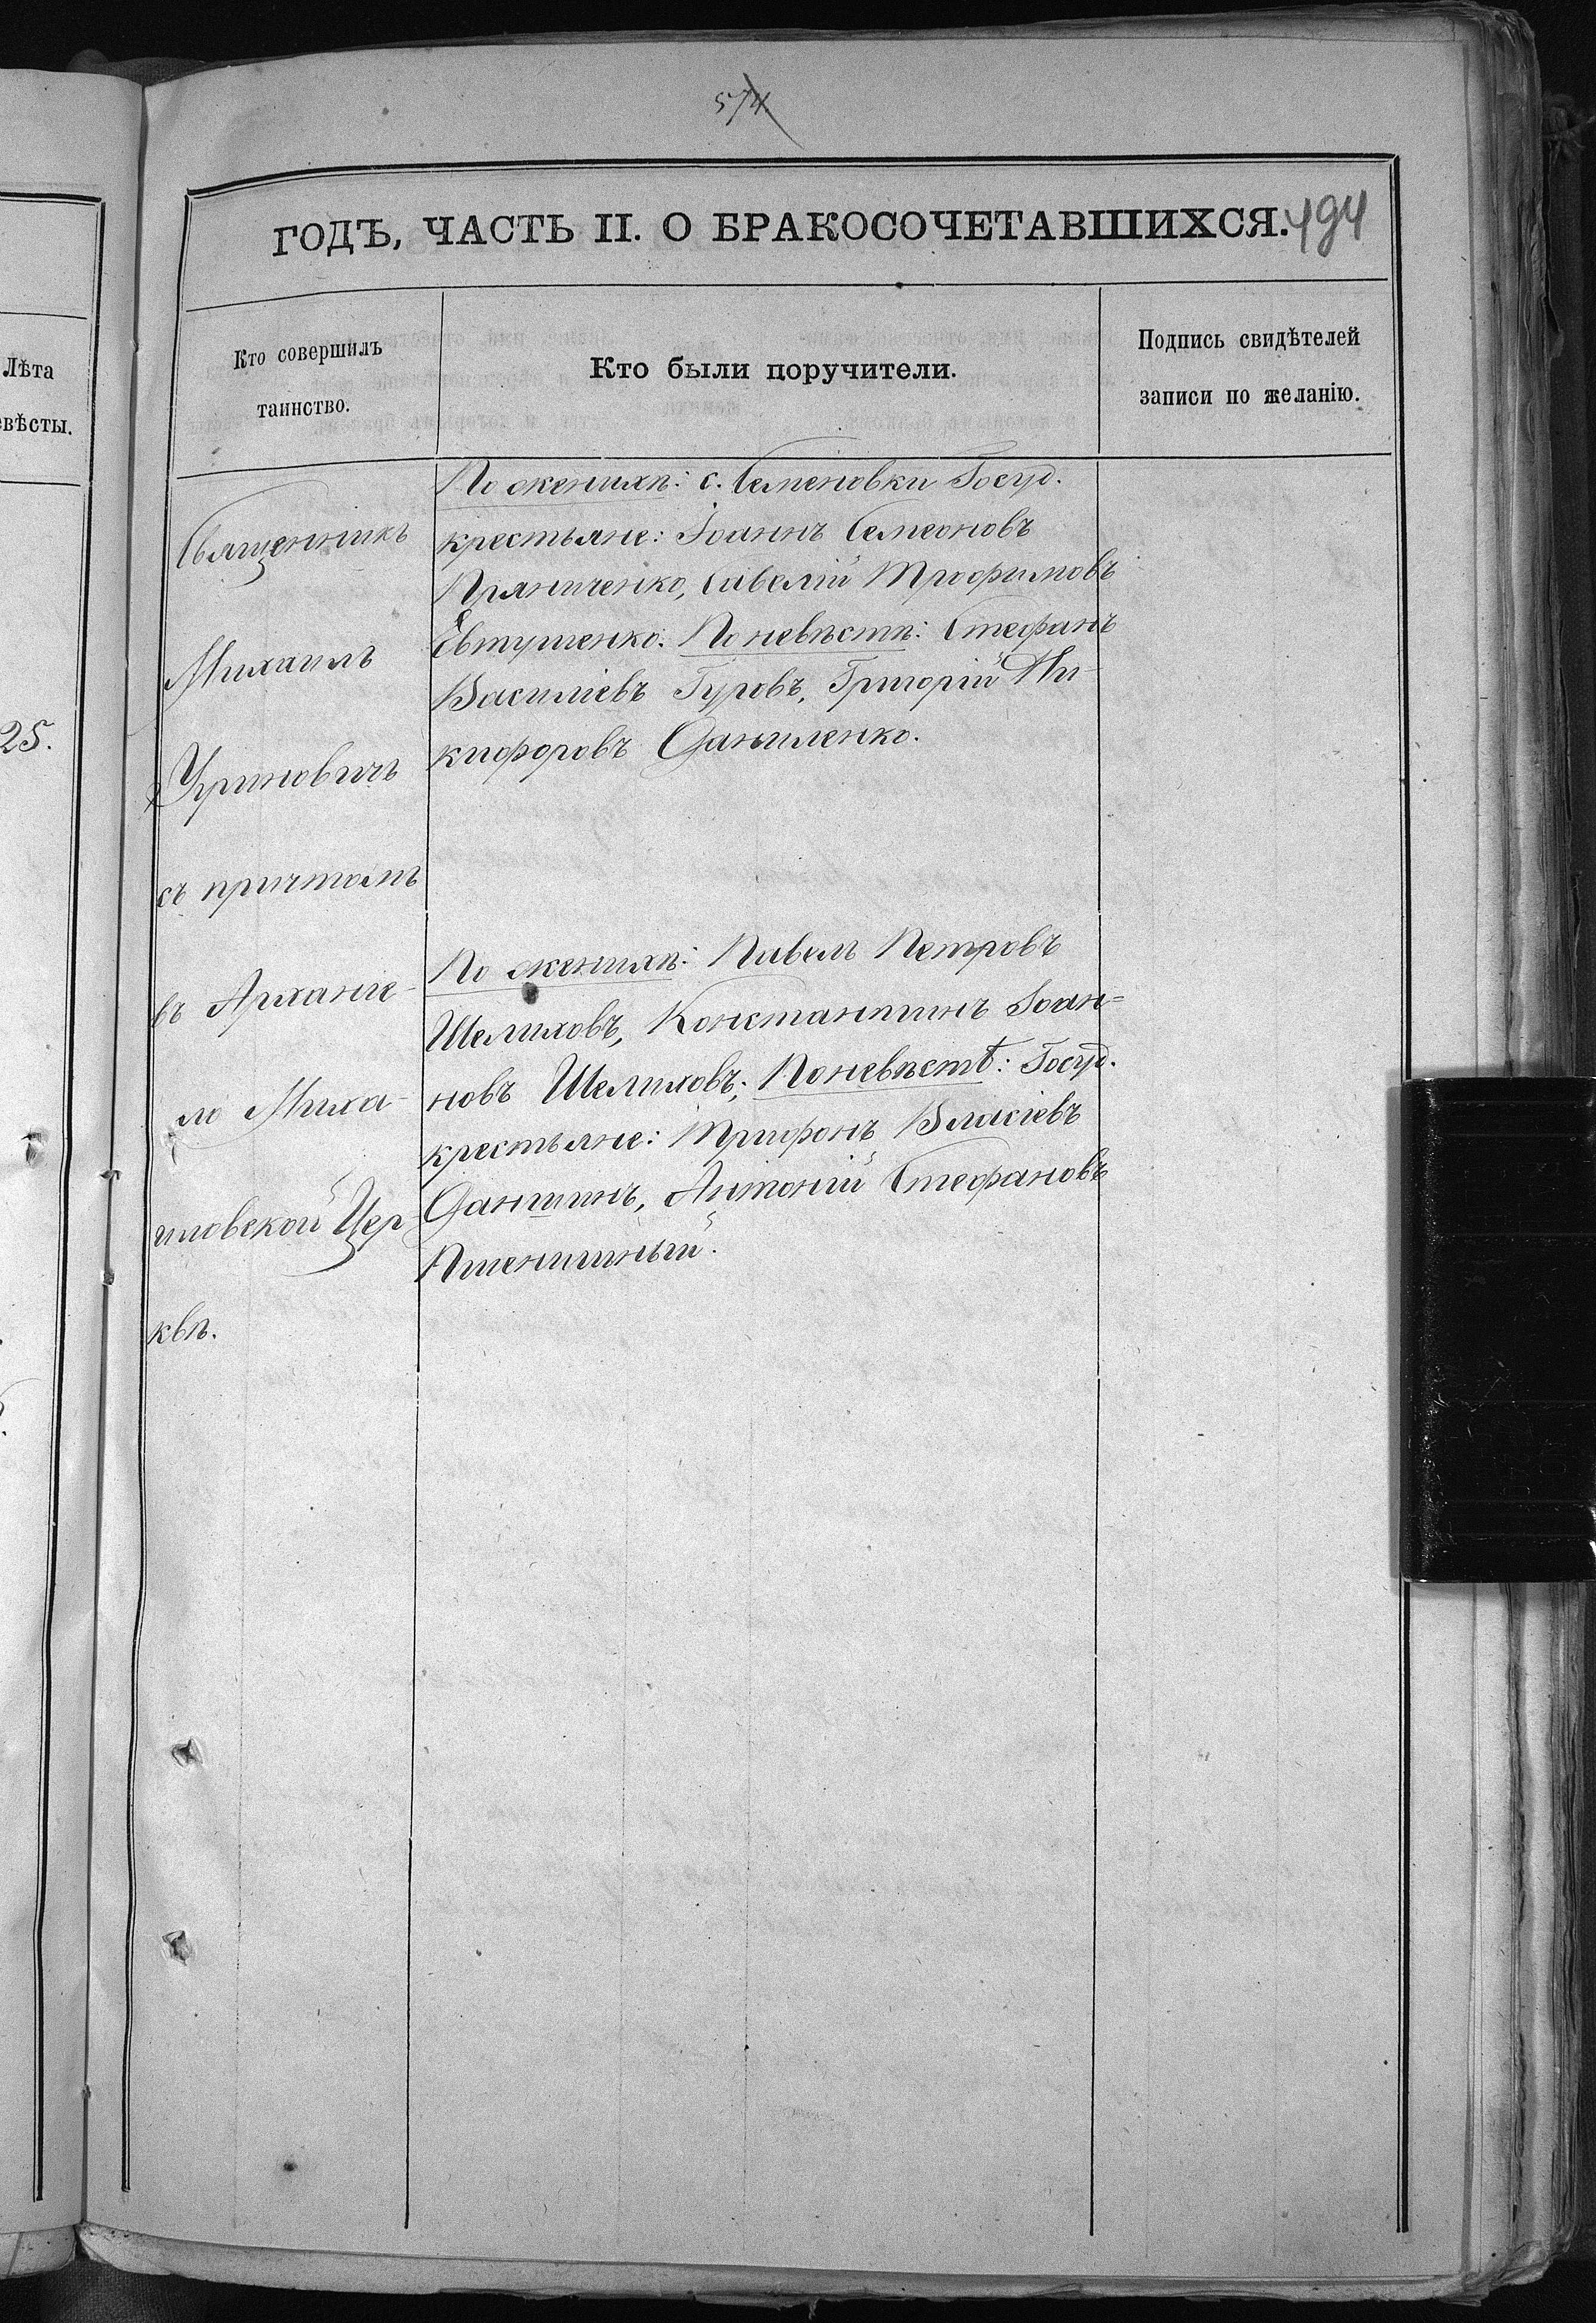 574
ГОДЪ, ЧАСТЬ II. О БРАКОСОЧЕТАВШИХСЯ.
494
Лѣта
евѣсты.
25.
Кто совершилъ
таинство.
Кто были поручители.
Подпись свидѣтелей
записи по желанію.
Священникъ
Михаилъ
Угриновичъ
съ причтомъ
въ Арханге-
ло Миха-
иловской Цер
квѣ.
По женихѣ: с. Семеновки Госуд.
крестьяне: Іоаннъ Семеоновъ
Пряниченко, Савелій Трофимовъ
Евтушенко. По невѣстѣ: Стефанъ
Василіевъ Гуровъ, Григорій Ни-
кифоровъ Даниленко.
По женихѣ: Павелъ Петровъ
Шелиховъ, Константинъ Іоан-
новъ Шелиховъ; По невѣстѣ: Госуд.
крестьяне: Трифонъ Власіевъ
Даншинъ, Антоній Стефановъ
Пшеничный.